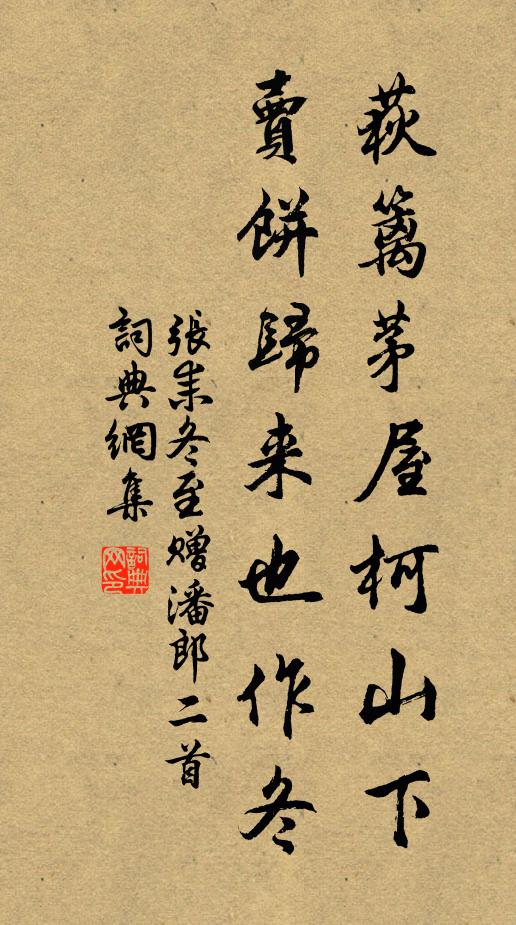 荻籬茅屋柯山下
賣餅歸来也作冬
張耒冬至贈潘郎二首
詞典網集
詞典网印